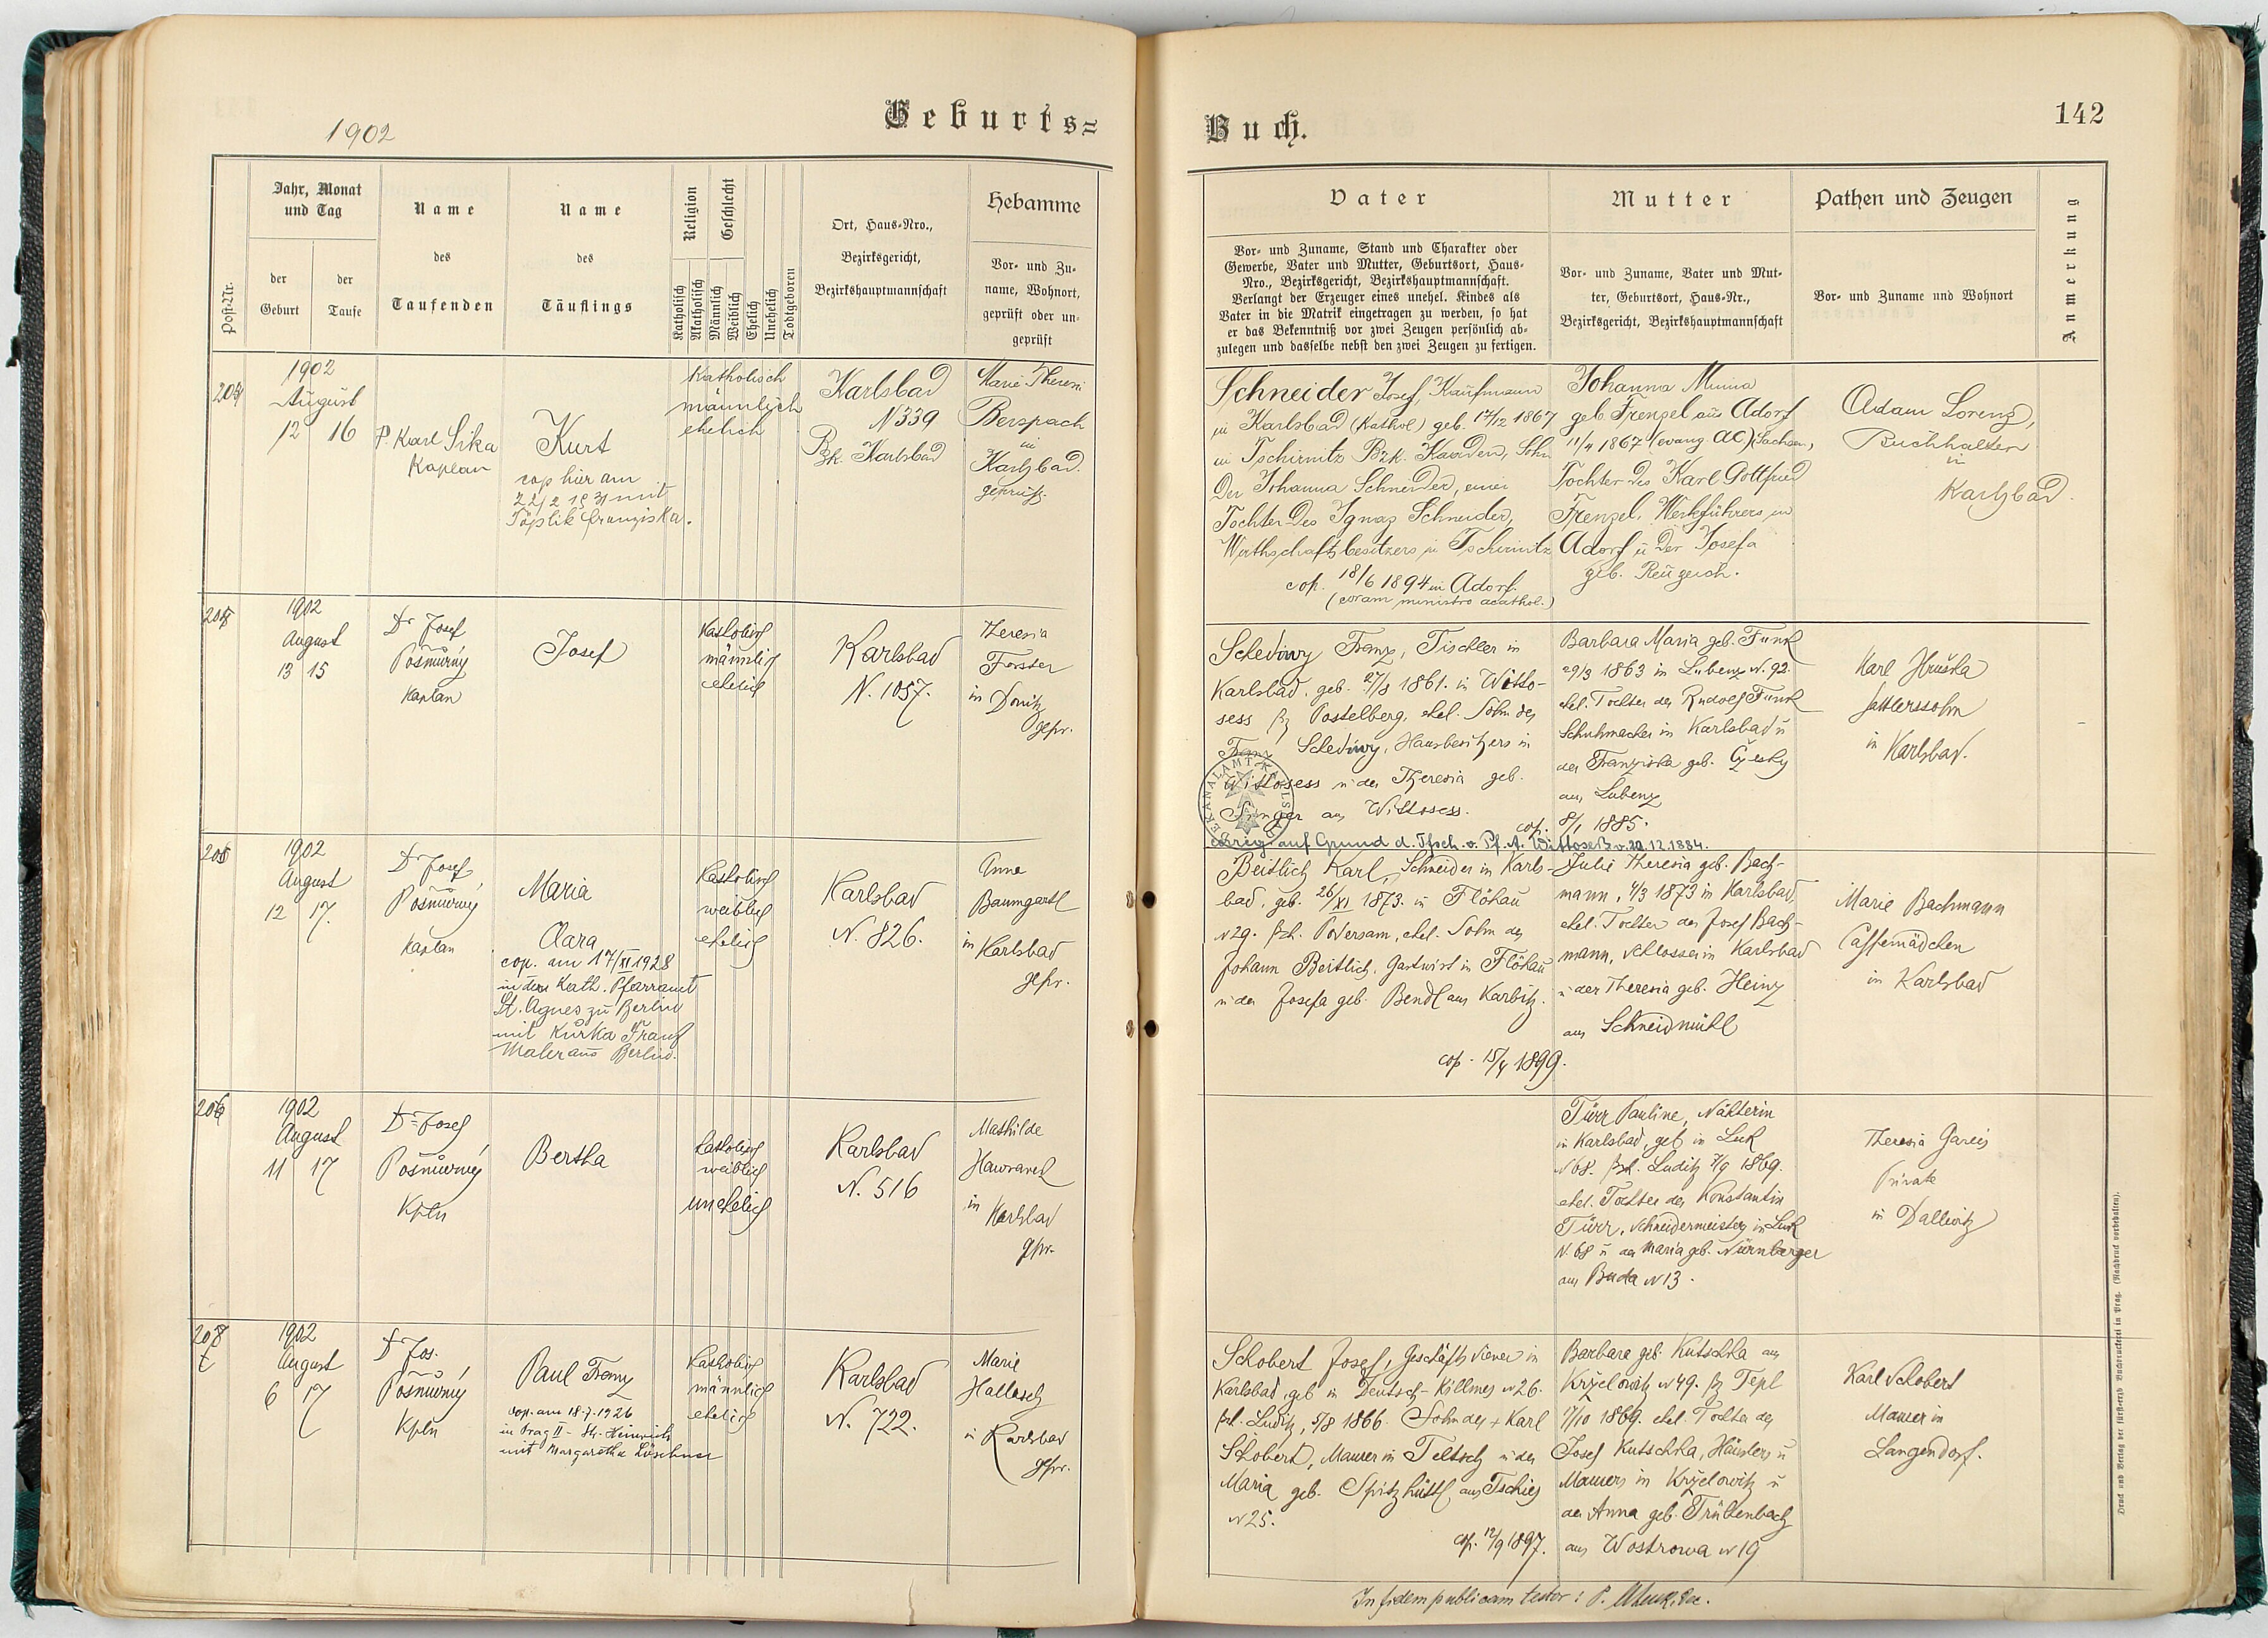 1902
Geburts=
Buch.
142
Post-Nr.
Jahr, Monat
und Tag
der
Geburt
der
Taufe
Name
des
Taufenden
Name
des
Täuflings
Religion
Geschlecht
Katholisch
Akatholisch
Männlich
Weiblich
Ehelich
Unehelich
Todtgeboren
Ort, Haus-Nro.,
Bezirksgericht,
Bezirkshauptmannschaft
Hebamme
Vor- und Zu-
name, Wohnort,
geprüft oder un-
geprüft
Vater
Vor- und Zuname, Stand und Charakter oder
Gewerbe, Vater und Mutter, Geburtsort, Haus-
Nro., Bezirksgericht, Bezirkshauptmannschaft.
Verlangt der Erzeuger eines unehel. Kindes als
Vater in die Matrik eingetragen zu werden, so hat
er das Bekenntniß vor zwei Zeugen persönlich ab-
zulegen und dasselbe nebst den zwei Zeugen zu fertigen.
Mutter
Vor- und Zuname, Vater und Mut-
ter, Geburtsort, Haus-Nr.,
Bezirksgericht, Bezirkshauptmannschaft
Pathen und Zeugen
Vor- und Zuname und Wohnort
Anmerkung
1902
August
12 16
P. Karl Sika
Kaplan
Kurt
cop hier am
mit
Franziska.
Katholisch
männlich
ehelich
Karlsbad
N 339
Bzk. Karlsbad
Marie Theresi
Berspach
in
Karlsbad.
geprüft.
Schneider Josef, Kaufmann
in Karlsbad (Kathol) geb. 17/12 1867
in Tschirnitz Bzk. Kaaden, Sohn
der Johanna Schneider, einer
Tochter des Ignaz Schneider,
Wirthschaftsbesitzers in Tschirnitz
cop. 18/6 1894 in Adorf.
(coram ministro acathol.)
Johanna Minna
geb Frenzel aus Adorf
11/4 1867 (evang AC) Sachsen,
Tochter des Karl Gottfried
Frenzel, Werkführers in
Adorf u der Josefa
geb.
Adam Lorenz,
Buchhalter
in
Karlsbad.
1902
August
13 15
Dr Josef
Pošmůrný
Kaplan
Josef
Katholisch
männlich
ehelich
Karlsbad
N. 1057.
Theresia
Forster
in Donitz
gepr.
Schediwy Franz, Tischler in
Karlsbad, geb. 27/8 1861. in Witto-
sess Bz Postelberg, ehel. Sohn des
Franz Schediwy, Hausbesitzers in
Wittosess u der Theresia geb.
aus Wittosess.
cop. 8/1 1885.
DEKANALAMT KARLSBAD
corrig. auf Grund d. Tfsch. v. Pf. A. Wittoseß v. 20.12.1884.
Barbara Maria geb. Funk
29/3 1863 in Lubenz N. 92.
ehel. Tochter des Rudolf Funk
Schuhmacher in Karlsbad u
der Franziska geb. Czesky
aus Lubenz
Karl Hruška
Sattlerssohn
in Karlsbad.
1902
August
12 17.
Dr Josef
Pošmůrný
Kaplan
Maria
Clara
cop. am 17/XI 1928
in dem Kath. Pfarramt
St. Agnes zu Berlin
mit Kůrka Franz
Maler aus Berlin.
Katholisch
weiblich
ehelich
Karlsbad
N. 826.
Anna
Baumgartl
in Karlsbad
gepr.
Beitlich Karl, Schneider in Karls-
bad, geb. 26/XI 1873. in Flöhau
N 29. Bzk. Podersam, ehel. Sohn des
Johann Beitlich, Gastwirt in Flöhau
u der Josefa geb. Bendl aus Karbitz.
cop. 15/4 1899.
Julie Theresia geb. Bach-
mann, 4/3 1873 in Karlsbad,
ehel. Tochter des Josef Bach-
mann, Schlosser in Karlsbad
u der Theresia geb. Heinz
aus Schneidmühl
Marie Bachmann
Caffemädchen
in Karlsbad
206
1902
August
11 17
Dr Josef
Pošmůrný
Kpln
Bertha
Katholisch
weiblich
unehelich
Karlsbad
N. 516
Mathilde
Hawranek
in Karlsbad
gpr.
Türr Pauline, Nähterin
in Karlsbad, geb in Luk
N 68. Bzk. Luditz 7/9 1869.
ehel. Tochter des Konstantin
Türr, Schneidermeister in Luk
N. 68 u der Maria geb. Nürnberger
aus Buda N 13.
Theresia Gareis
Private
in Dallwitz
207
1902
August
6 17
Dr Jos.
Pošmůrný
Kpln
Paul Franz
cop. am 18.7.1926
in Prag II - St. Heinrich
mit Margaretha Löschner
Katholisch
männlich
ehelich
Karlsbad
N. 722.
Marie
Hallasch
in Karlsbad
gpr.
Schobert Josef, Geschäftsdiener in
Karlsbad, geb in Deutsch-Killmes N 26.
Bzk. Luditz, 5/8 1866. Sohn des + Karl
Schobert, Maurer in Teltsch u der
Maria geb. Spitzhüttl aus Tschies
N 25.
cop. 12/9 1897.
Barbara geb. Kutschka aus
Krželowitz N 49. Bz Tepl
17/10 1869. ehel. Tochter des
Josef Kutschka, Häuslers u
Maurers in Krželowitz u
der Anna geb. Trältenbach
aus Wostrowa N 19
Karl Schobert
Maurer in
Langendorf.
In fidem publicam testor: P.
Druck und Verlag der fürst-erzb. Buchdruckerei in Prag. (Nachdruck vorbehalten).